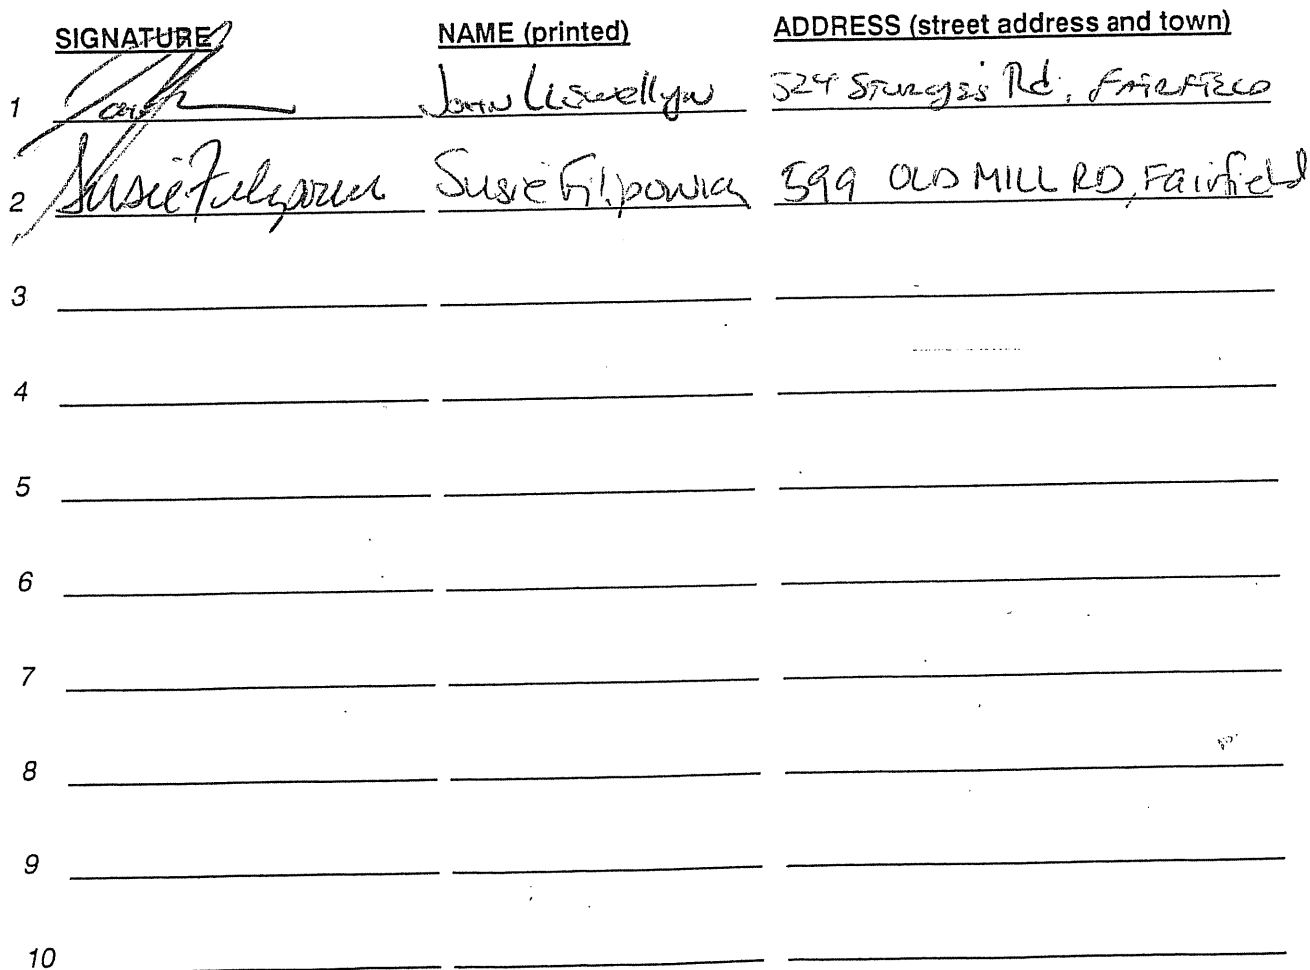 SIGNATURE NAME (printed) ADDRESS (street address and town)
1 John Llewellyn 524 Sturges Rd, FAIRFIELD
2 Susie Filipowich Susie Filipowich 599 OLD MILL RD, Fairfield
3
4
5
6
7
8
9
10